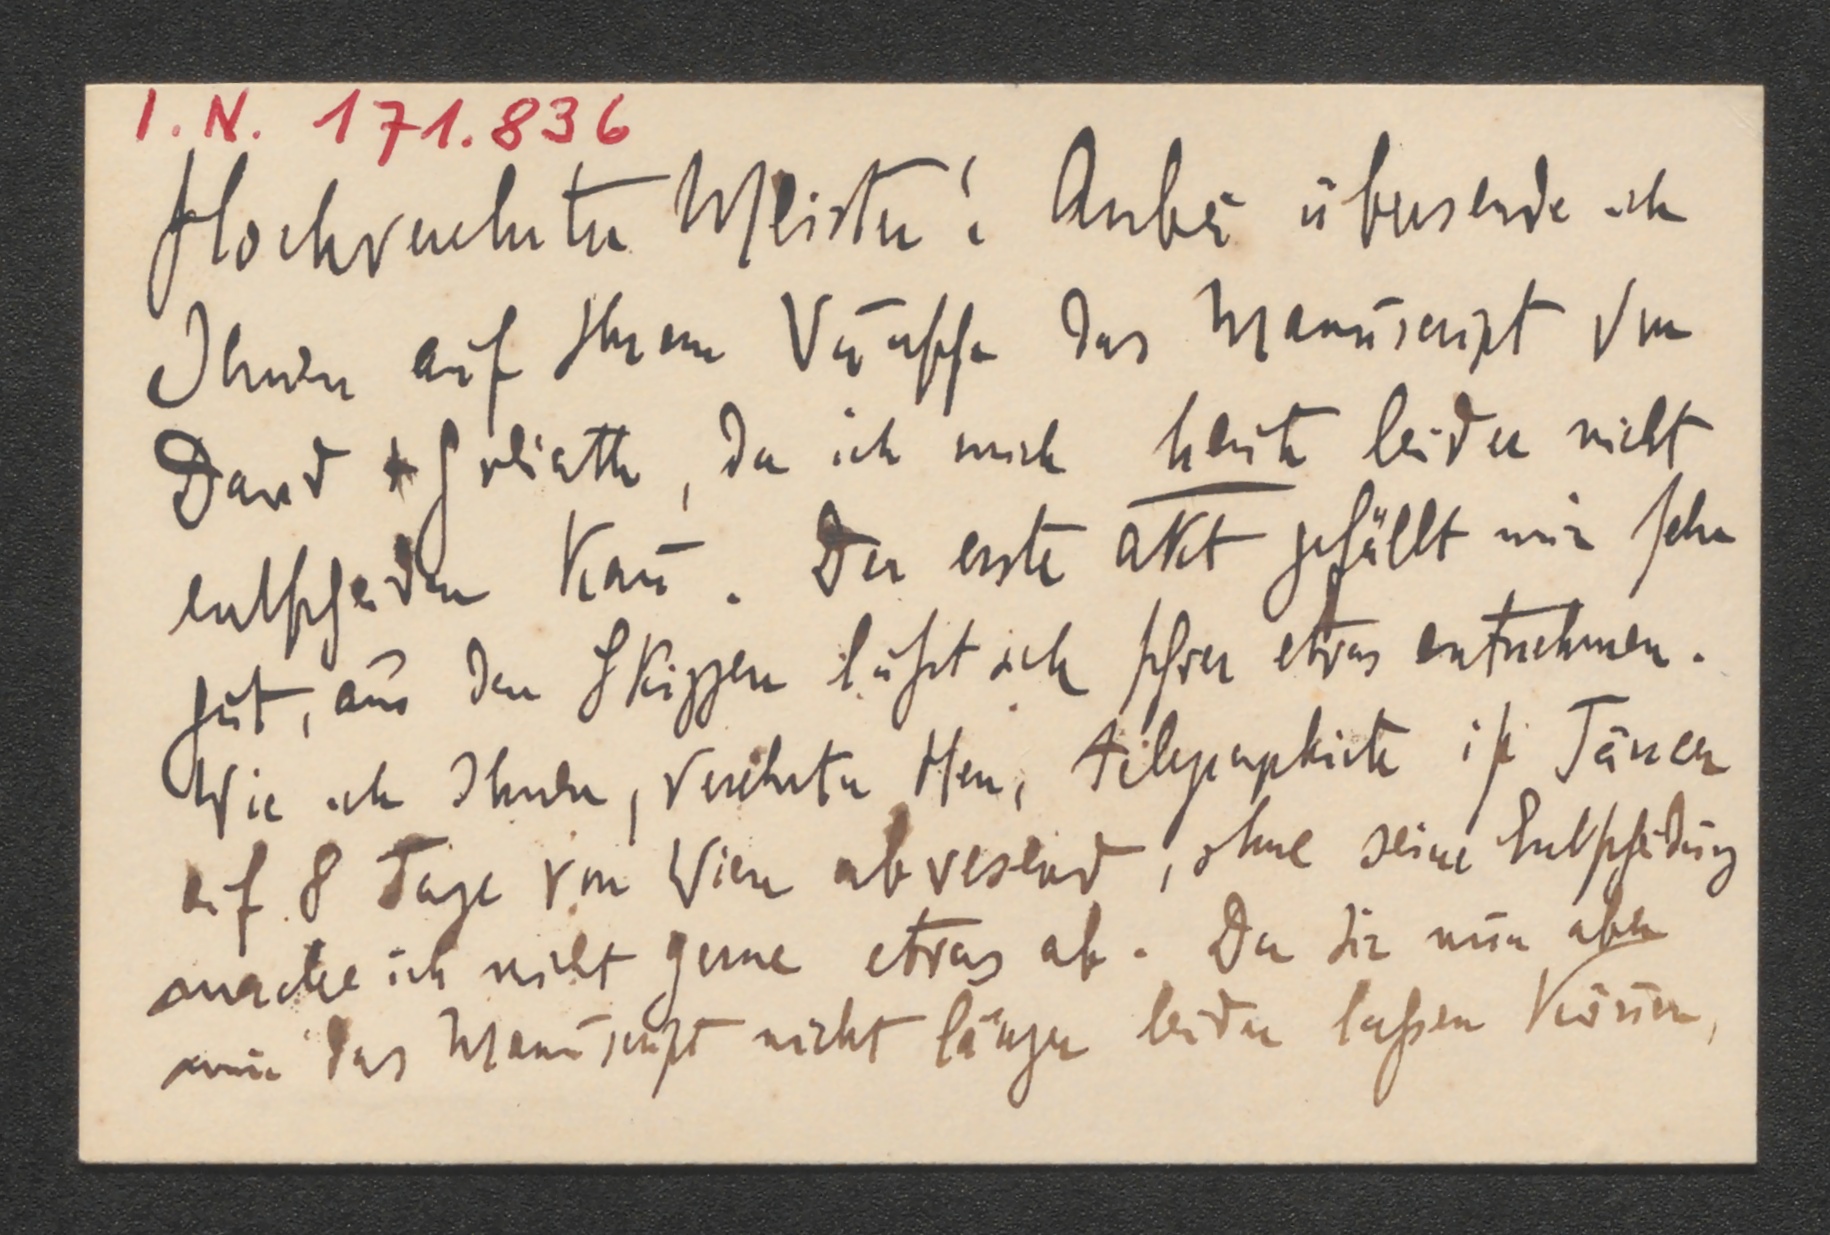 I. N. 171.836
Hochverehrter Meister! Anbei übersende ich
Ihnen auf Ihrem Wunsche das Manuscript von
David & Goliath, da ich mich heute leider nicht
entscheiden kañ. Der erste Akt gefällt mir sehr
gut, aus den Skizzen läßt sich schwer etwas entnehmen.
Wie ich Ihnen, verehrter Herr, telegraphirte ist
auf 8 Tage von Wien abwesend, ohne seine Entscheidung
mache ich nicht gerne etwas ab. Da Sie nun aber
mir das Manuscript nicht länger leider laßen köñen,